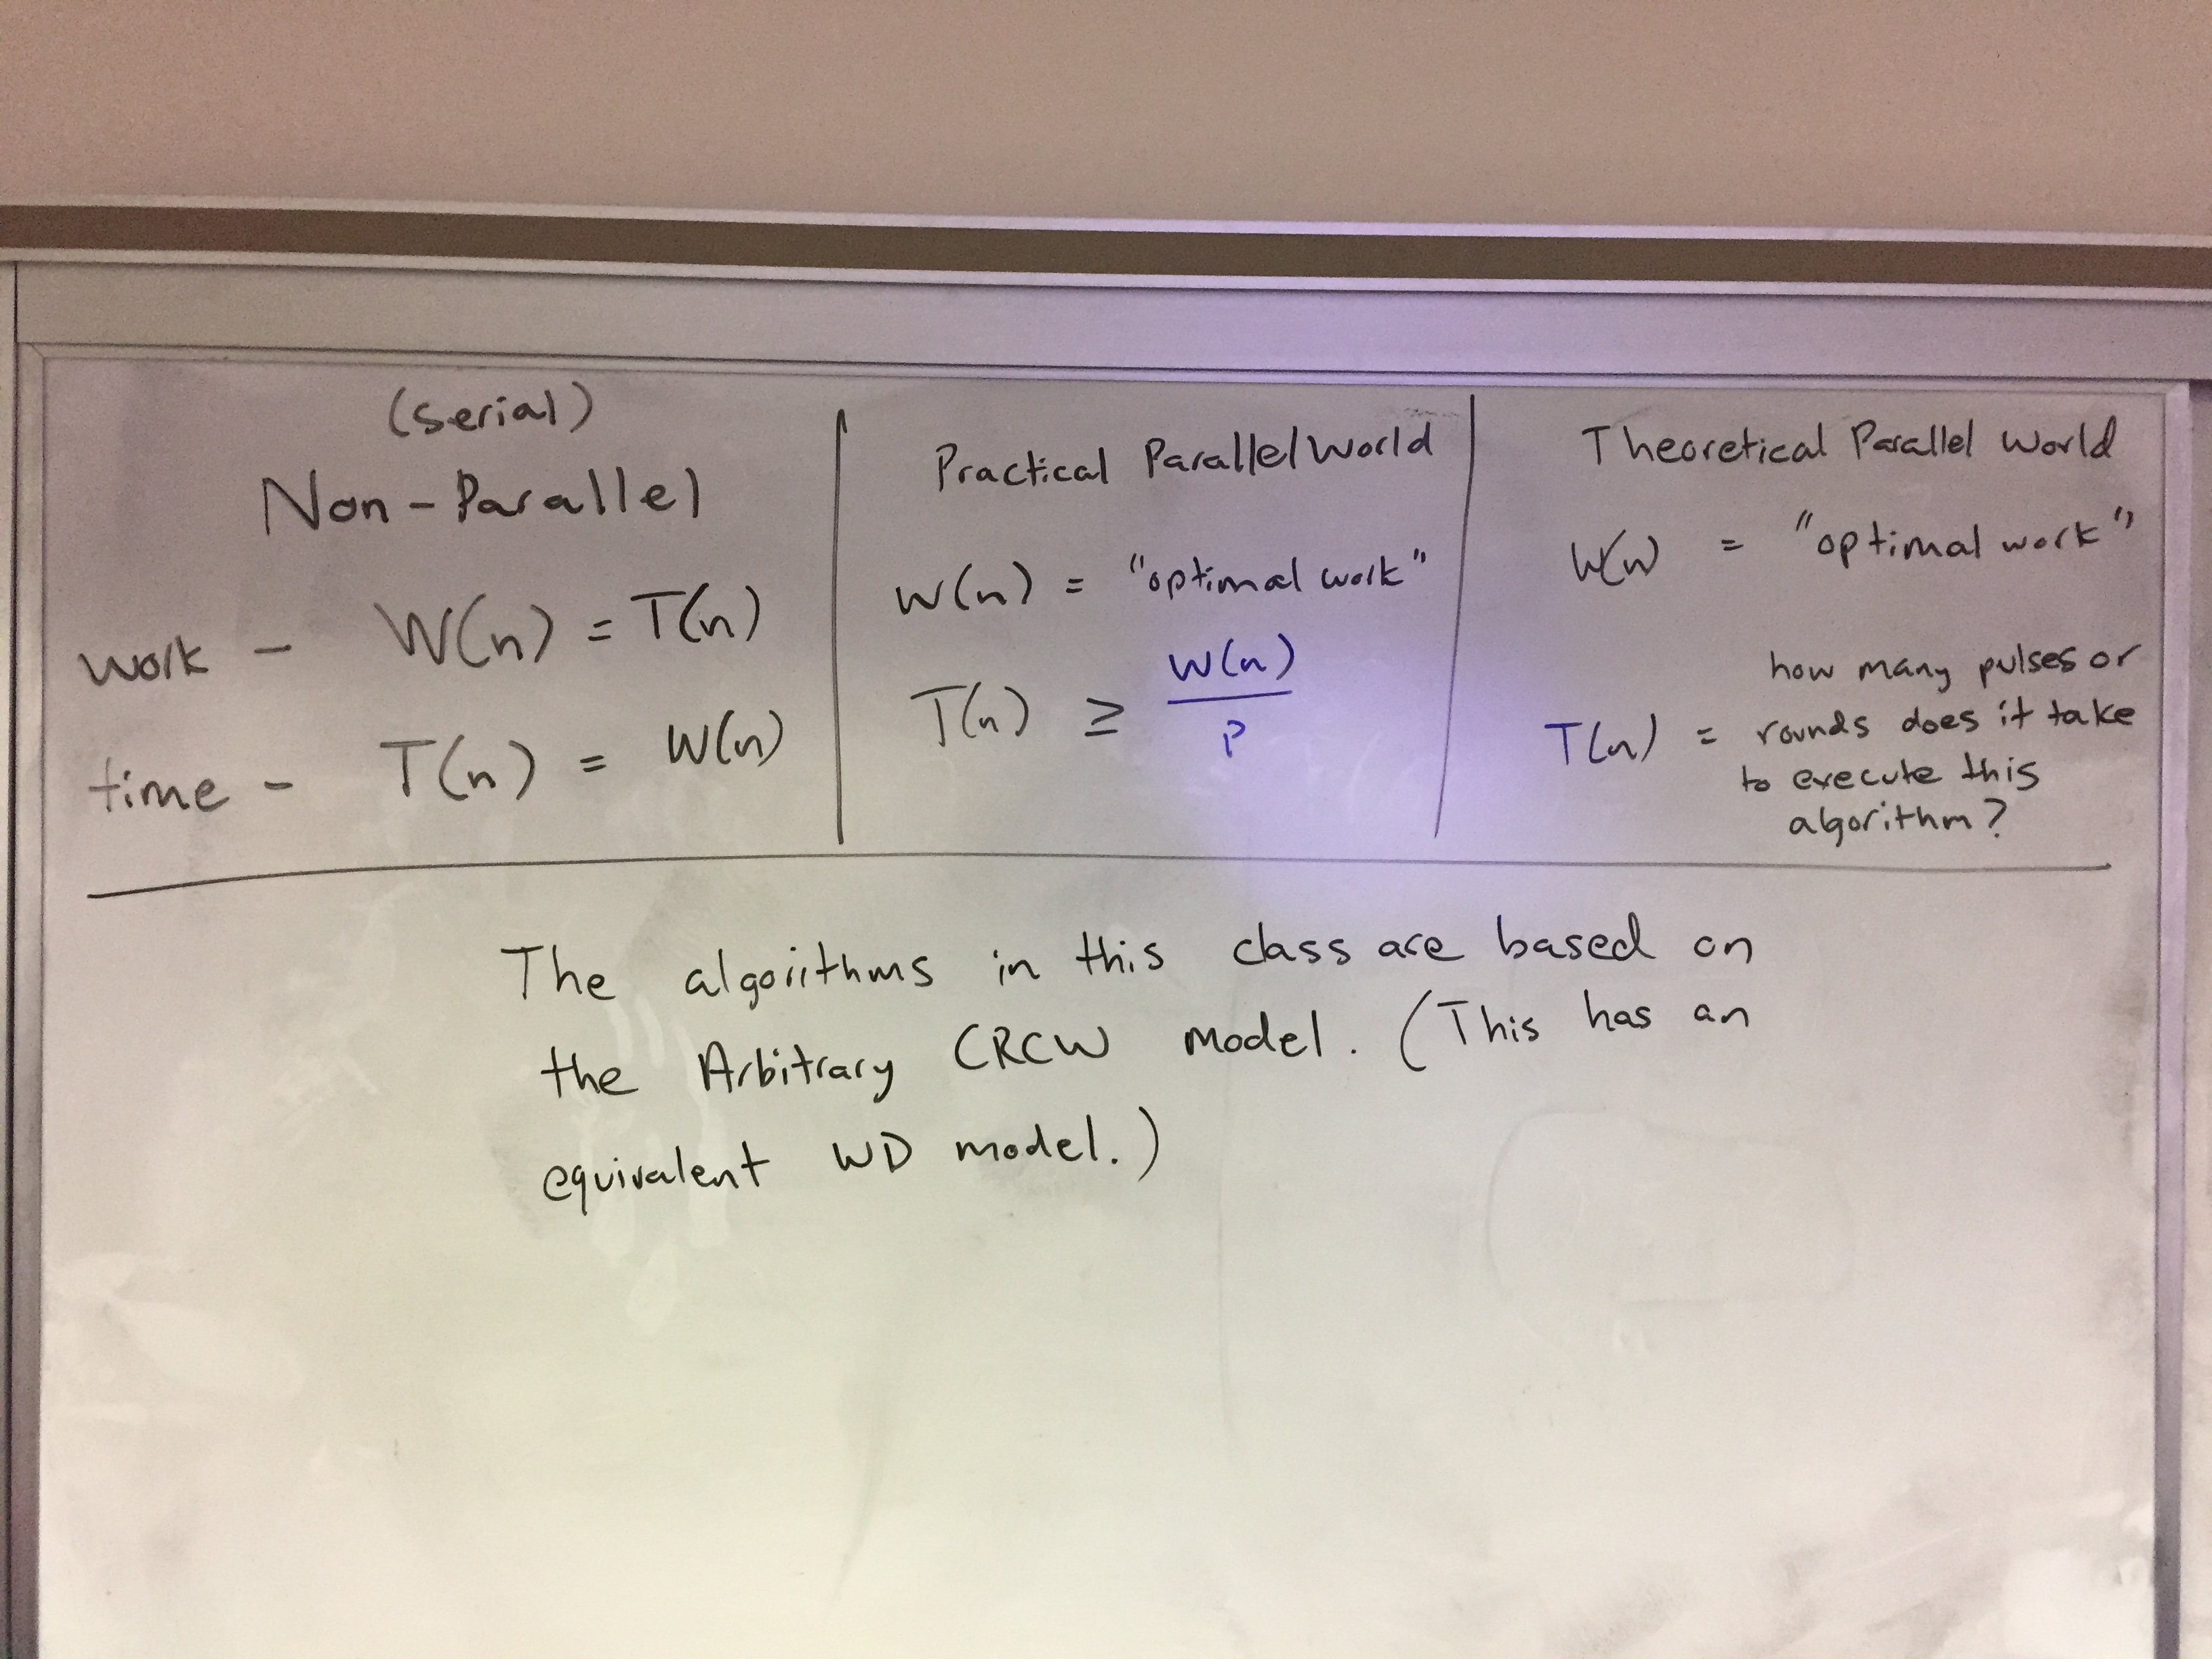 (serial)
Non-Parallel
work - W(n) = T(n)
time - T(n) = W(n)
Practical Parallel World
W(n) = "optimal work"
T(n) ≥ W(n)
P
Theoretical Parallel World
W(n) = "optimal work"
how many pulses or
T(n) = rounds does it take
to execute this
algorithm?
The algorithms in this class are based on
the Arbitrary CRCW model. (This has an
equivalent WD model.)